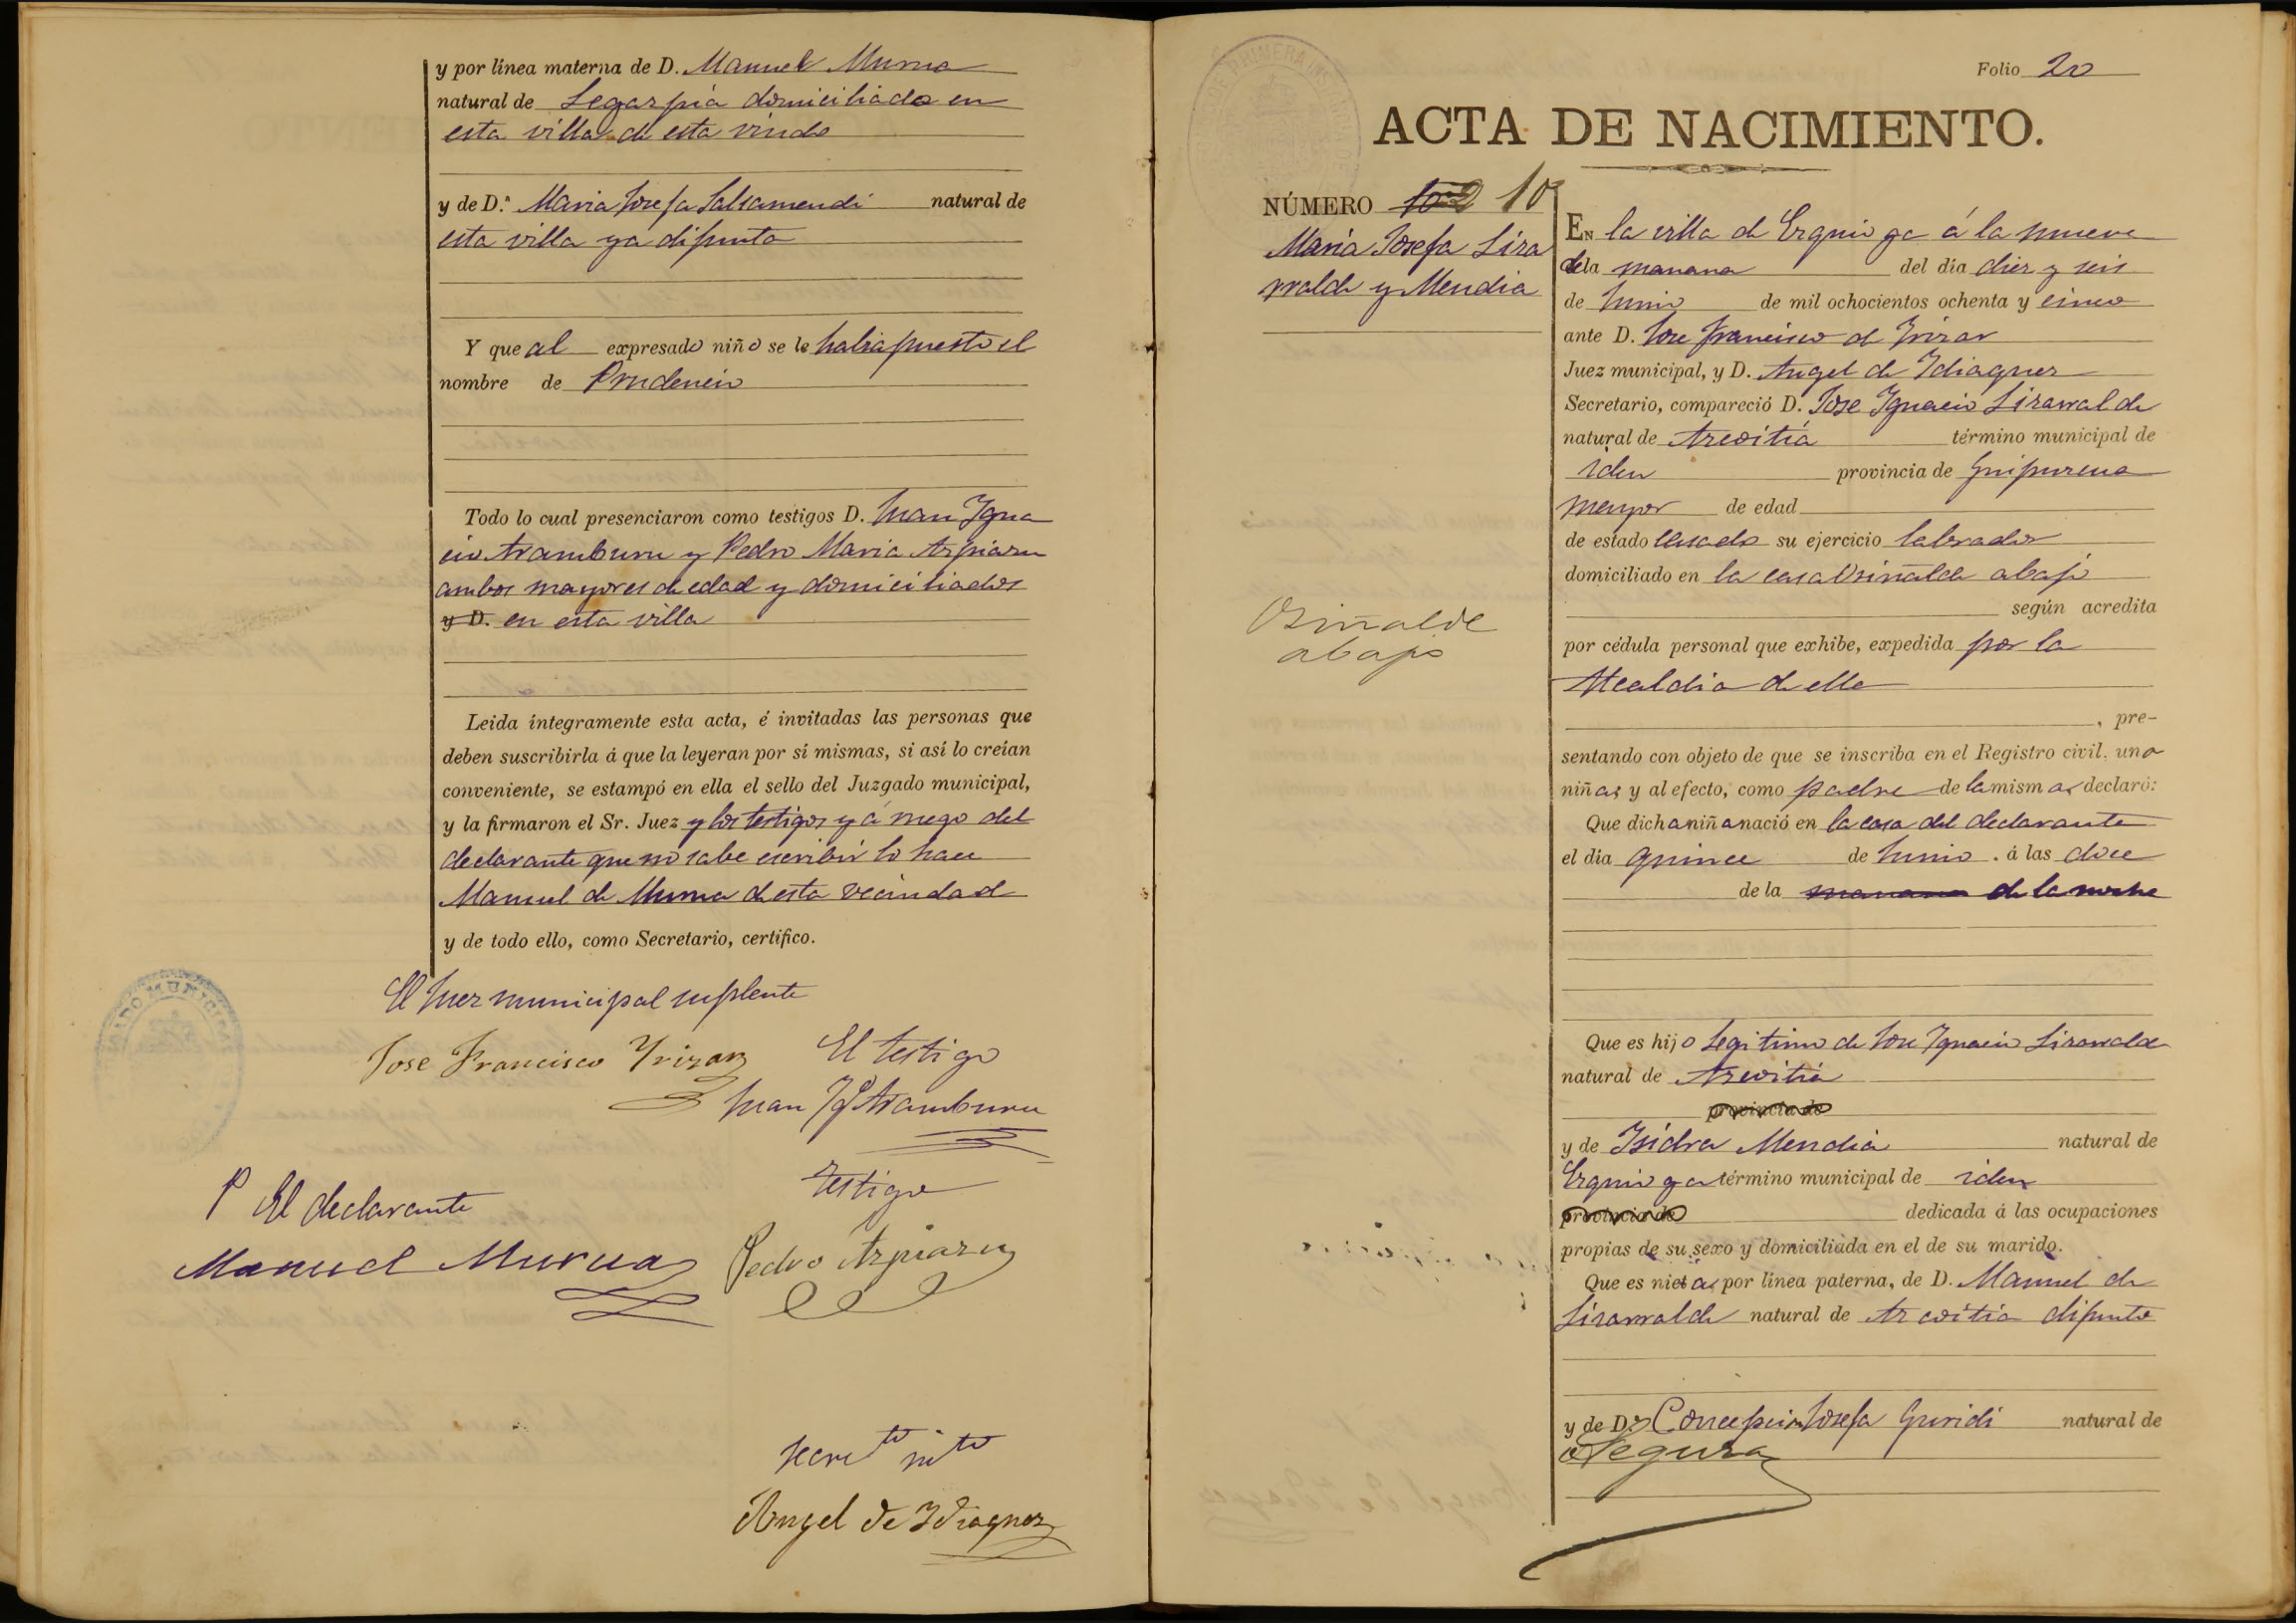 y por línea materna de D. Manuel Murua
natural de Legazpia domiciliado en
esta villa de esta viudo
y de D.ª Maria Josefa Salsamendi natural de
esta villa ya difunta
Y que al expresado niño se le habia puesto el
nombre de Prudencio
Todo lo cual presenciaron como testigos D. Juan Igna
cio Aramburu y Pedro Maria Azpiazu
ambos mayores de edad y domiciliados
y D. en esta villa
Leida íntegramente esta acta, é invitadas las personas que
deben suscribirla á que la leyeran por sí mismas, si así lo creían
conveniente, se estampó en ella el sello del Juzgado municipal,
y la firmaron el Sr. Juez y los testigos y á ruego del
declarante que no sabe escribir lo hace
Manuel de Murua de esta vecindad
y de todo ello, como Secretario, certifico.
El Juez municipal suplente
Jose Francisco Yrizar
El testigo
Juan Yg Aramburu
P El declarante
testigo
Manuel Murua
Pedro Azpiazu
Angel de Ydiaquez
Folio 20
ACTA DE NACIMIENTO.
NÚMERO 10
Maria Josefa Liza
rralde y Mendia
Osiñalde
abajo
En la villa de Ezquioga á la nueve
de la manana del día diez y seis
de Junio de mil ochocientos ochenta y cinco
ante D. Jose Francisco de Yrizar
Juez municipal, y D. Angel de Ydiaquez
Secretario, compareció D. Jose Ygnacio Lizarralde
natural de Azcoitia término municipal de
iden provincia de Guipuzcua
mayor de edad
de estado casado su ejercicio labrador
domiciliado en la casa Osiñalde abajo
según acredita
por cédula personal que exhibe, expedida por la
Alcaldia de ella
, pre-
sentando con objeto de que se inscriba en el Registro civil, una
niña, y al efecto, como padre de la misma, declaró:
Que dicha niña nació en la casa del declarante
el día quince de Junio . á las doce
de la manana de la noche
Que es hijo legitimo de Jose Ygnacio Lizarralde
natural de Azcoitia
provincia de
y de Isidra Mendia natural de
Ezquioga término municipal de iden
provincia de dedicada á las ocupaciones
propias de su sexo y domiciliada en el de su marido.
Que es nieta, por línea paterna, de D. Manuel de
Lizarralde natural de Azcoitia difunto
y de D.ª Concepcion Josefa Guridi natural de
Segura